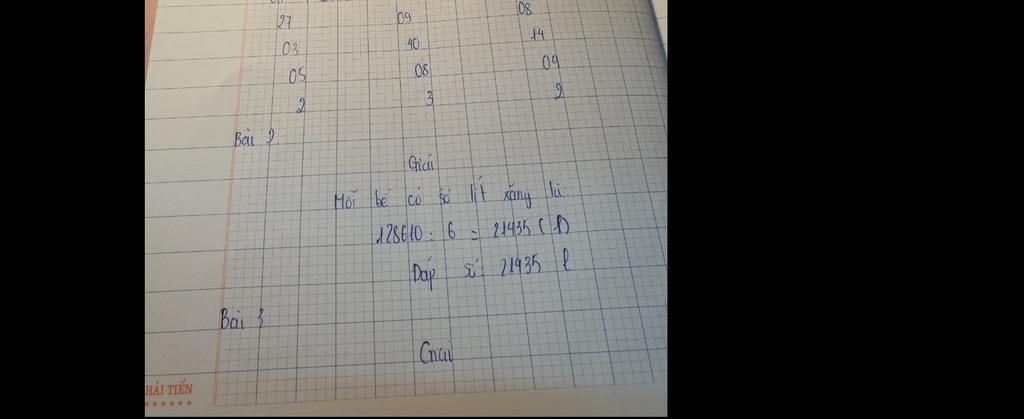 27 09 08
03 40 14
05 08 09
2 3 2
Bài 2
Giải
Mỗi bể có số lít xăng là
128610 : 6 = 21435 (l)
Đáp số: 21435 l
Bài 3
Giải
HẢI TIẾN